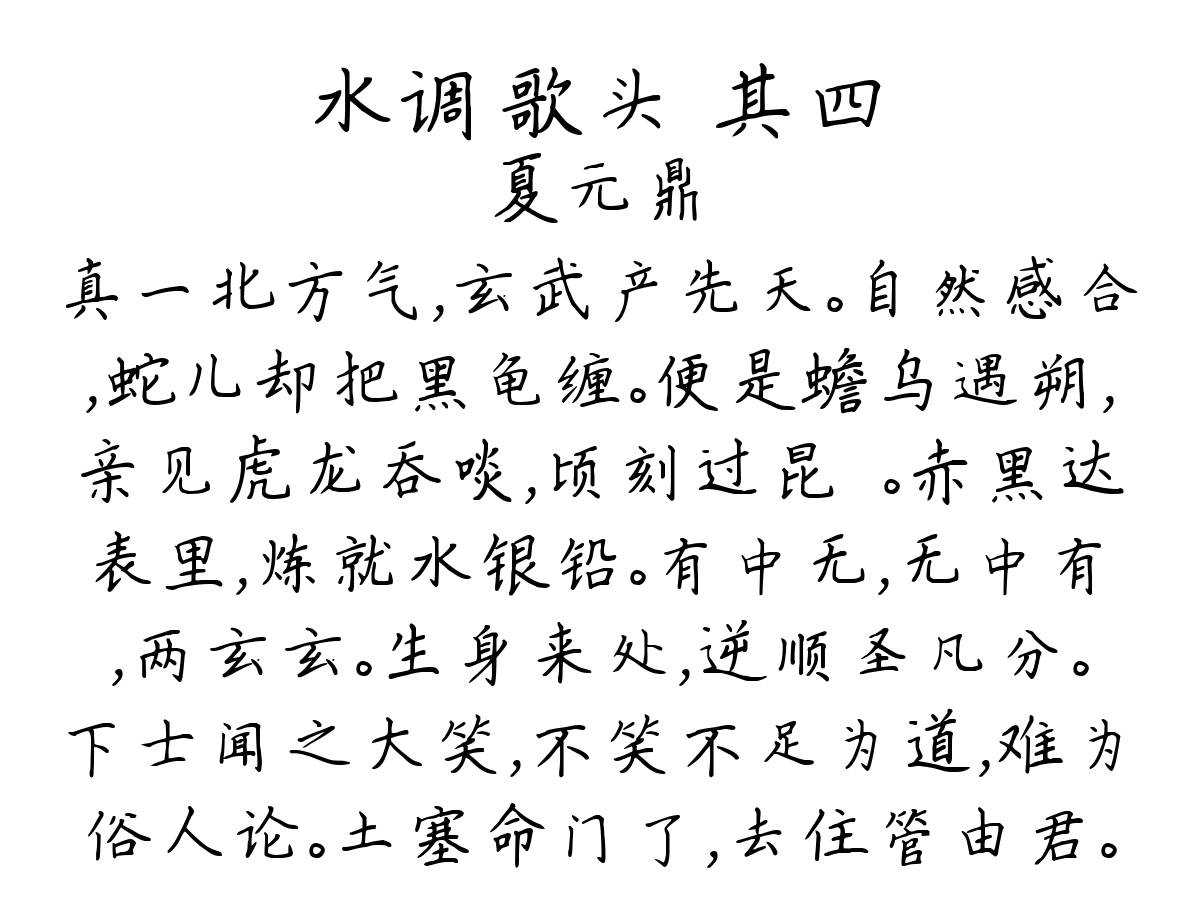 水调歌头 其四
夏元鼎
真一北方气,玄武产先天。自然感合
,蛇儿却把黑龟缠。便是蟾乌遇朔,
亲见虎龙吞啖,顷刻过昆 。赤黑达
表里,炼就水银铅。有中无,无中有
,两玄玄。生身来处,逆顺圣凡分。
下士闻之大笑,不笑不足为道,难为
俗人论。土塞命门了,去住管由君。